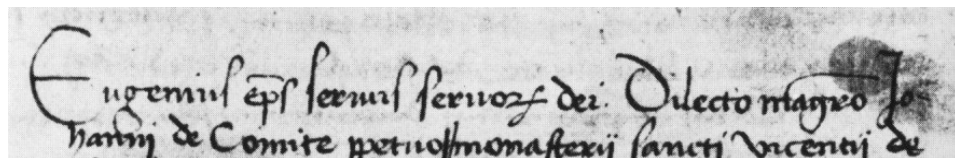 Eugenius ep̅s servus servorꝝ dei. Dilecto mag̅ro Jo-
hanni de Comite ꝑpetuo monasterii sancti vicentii de